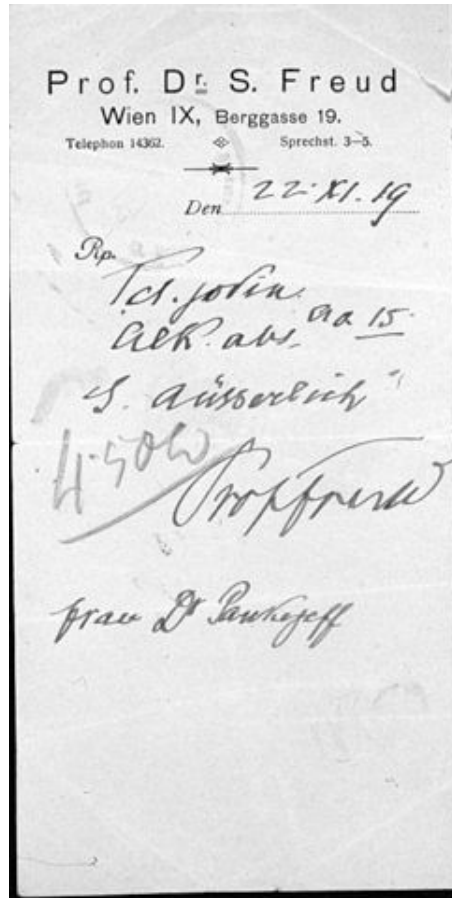 Prof. Dr. S. Freud
Wien IX, Berggasse 19.
Telephon 14362. Sprechst. 3–5.
Den 22. XI. 19
Rp.
Tct. jodin.
Alk. abs. aa 15
S. Äusserlich
Prof Freud
Frau Dr Pankejeff